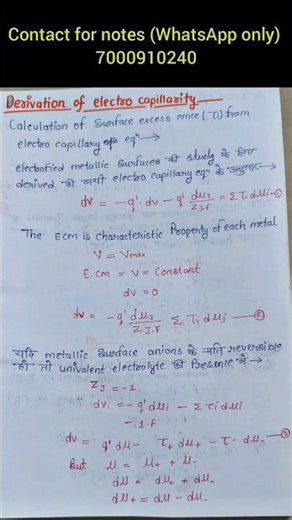 Contact for notes (WhatsApp only)
7000910240
Derivation of electro capillarity
Calculation of Surface excess ance (τ) from
electro capillary eqⁿ →
electrofied metallic surfaces की study के लिए
derived की गयी electro capillary eqⁿ के अनुसार →
dv = -q' dv - q' dμJ/ZJ.F = Σ τi dμi -①
The ECM is characteristic Property of each metal
V = Vmax
Ecm = V = Constant
dv = 0
dv = -q' dμJ/ZJ.F Σ τi dμi -②
यदि metallic surface anions के प्रति reversible
हो तो univalent electrolyte की Presence में →
ZJ = -1
dv = -q' dμi - Στi dμi
-1.F
dv = q' dμ- τ+ dμ+ - τ- dμ- -③
But μ = μ+ + μ-
dμ = dμ+ + dμ-
dμ+ = dμ - dμ-